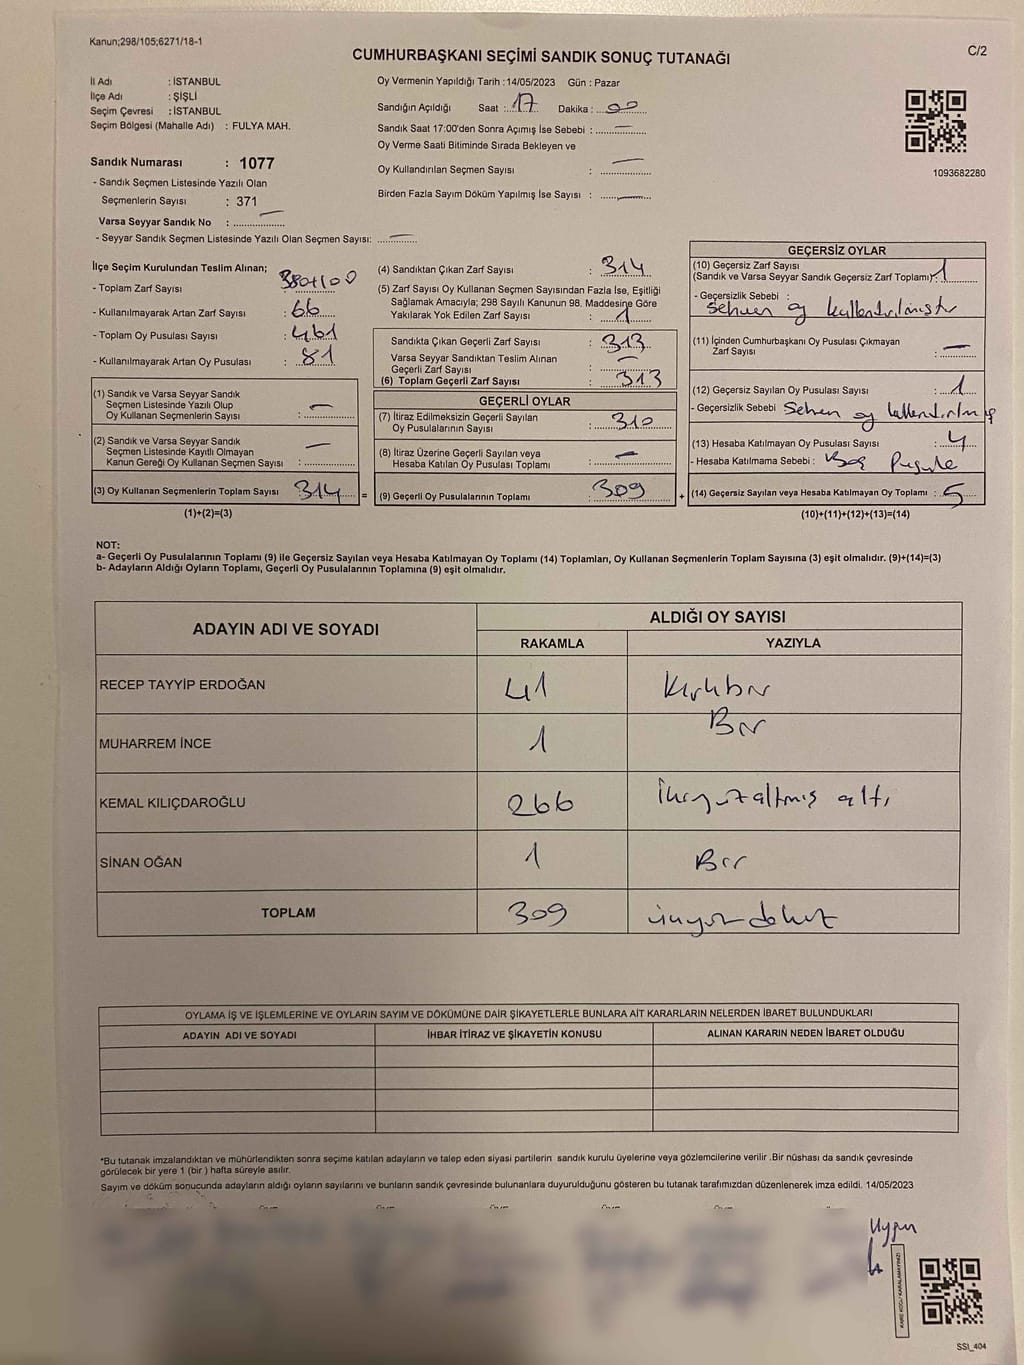 Kanun;298/105;6271/18-1
CUMHURBAŞKANI SEÇİMİ SANDIK SONUÇ TUTANAĞI
C/2
İl Adı : İSTANBUL
İlçe Adı : ŞİŞLİ
Seçim Çevresi : İSTANBUL
Seçim Bölgesi (Mahalle Adı) : FULYA MAH.
Oy Vermenin Yapıldığı Tarih :14/05/2023 Gün : Pazar
Sandığın Açıldığı Saat : 17 Dakika : 00
Sandık Saat 17:00'den Sonra Açımış İse Sebebi : —
Oy Verme Saati Bitiminde Sırada Bekleyen ve
Oy Kullandırılan Seçmen Sayısı : —
Birden Fazla Sayım Döküm Yapılmış İse Sayısı : —
1093682280
Sandık Numarası : 1077
- Sandık Seçmen Listesinde Yazılı Olan
Seçmenlerin Sayısı : 371
Varsa Seyyar Sandık No : —
- Seyyar Sandık Seçmen Listesinde Yazılı Olan Seçmen Sayısı: —
İlçe Seçim Kurulundan Teslim Alınan;
- Toplam Zarf Sayısı : 380+100
- Kullanılmayarak Artan Zarf Sayısı : 66
- Toplam Oy Pusulası Sayısı : 461
- Kullanılmayarak Artan Oy Pusulası : 81
(1) Sandık ve Varsa Seyyar Sandık
Seçmen Listesinde Yazılı Olup
Oy Kullanan Seçmenlerin Sayısı : —
(2) Sandık ve Varsa Seyyar Sandık
Seçmen Listesinde Kayıtlı Olmayan
Kanun Gereği Oy Kullanan Seçmen Sayısı : —
(3) Oy Kullanan Seçmenlerin Toplam Sayısı : 314 =
(1)+(2)=(3)
(4) Sandıktan Çıkan Zarf Sayısı : 314
(5) Zarf Sayısı Oy Kullanan Seçmen Sayısından Fazla İse, Eşitliği
Sağlamak Amacıyla; 298 Sayılı Kanunun 98. Maddesine Göre
Yakılarak Yok Edilen Zarf Sayısı : 1
Sandıkta Çıkan Geçerli Zarf Sayısı : 313
Varsa Seyyar Sandıktan Teslim Alınan
Geçerli Zarf Sayısı : —
(6) Toplam Geçerli Zarf Sayısı : 313
GEÇERLİ OYLAR
(7) İtiraz Edilmeksizin Geçerli Sayılan
Oy Pusulalarının Sayısı : 310
(8) İtiraz Üzerine Geçerli Sayılan veya
Hesaba Katılan Oy Pusulası Toplamı : —
(9) Geçerli Oy Pusulalarının Toplamı : 309 +
GEÇERSİZ OYLAR
(10) Geçersiz Zarf Sayısı
(Sandık ve Varsa Seyyar Sandık Geçersiz Zarf Toplamı) : 1
- Geçersizlik Sebebi :
Sehven oy kullandırılmıştır
(11) İçinden Cumhurbaşkanı Oy Pusulası Çıkmayan
Zarf Sayısı : —
(12) Geçersiz Sayılan Oy Pusulası Sayısı : 1
- Geçersizlik Sebebi Sehven oy kullandırılmış
(13) Hesaba Katılmayan Oy Pusulası Sayısı : 4
- Hesaba Katılmama Sebebi : Boş Pusula
(14) Geçersiz Sayılan veya Hesaba Katılmayan Oy Toplamı : 5
(10)+(11)+(12)+(13)=(14)
NOT:
a- Geçerli Oy Pusulalarının Toplamı (9) ile Geçersiz Sayılan veya Hesaba Katılmayan Oy Toplamı (14) Toplamları, Oy Kullanan Seçmenlerin Toplam Sayısına (3) eşit olmalıdır. (9)+(14)=(3)
b- Adayların Aldığı Oyların Toplamı, Geçerli Oy Pusulalarının Toplamına (9) eşit olmalıdır.
ADAYIN ADI VE SOYADI
ALDIĞI OY SAYISI
RAKAMLA YAZIYLA
RECEP TAYYİP ERDOĞAN 41 Kırkbir
MUHARREM İNCE 1 Bir
KEMAL KILIÇDAROĞLU 266 İkiyüzaltmış altı
SİNAN OĞAN 1 Bir
TOPLAM 309 üçyüz dokuz
OYLAMA İŞ VE İŞLEMLERİNE VE OYLARIN SAYIM VE DÖKÜMÜNE DAİR ŞİKAYETLERLE BUNLARA AİT KARARLARIN NELERDEN İBARET BULUNDUKLARI
ADAYIN ADI VE SOYADI İHBAR İTİRAZ VE ŞİKAYETİN KONUSU ALINAN KARARIN NEDEN İBARET OLDUĞU
*Bu tutanak imzalandıktan ve mühürlendikten sonra seçime katılan adayların ve talep eden siyasi partilerin sandık kurulu üyelerine veya gözlemcilerine verilir .Bir nüshası da sandık çevresinde
görülecek bir yere 1 (bir ) hafta süreyle asılır.
Sayım ve döküm sonucunda adayların aldığı oyların sayılarını ve bunların sandık çevresinde bulunanlara duyurulduğunu gösteren bu tutanak tarafımızdan düzenlenerek imza edildi. 14/05/2023
Uygun
KARE KODU KARALAMAYINIZ!
SSI_404